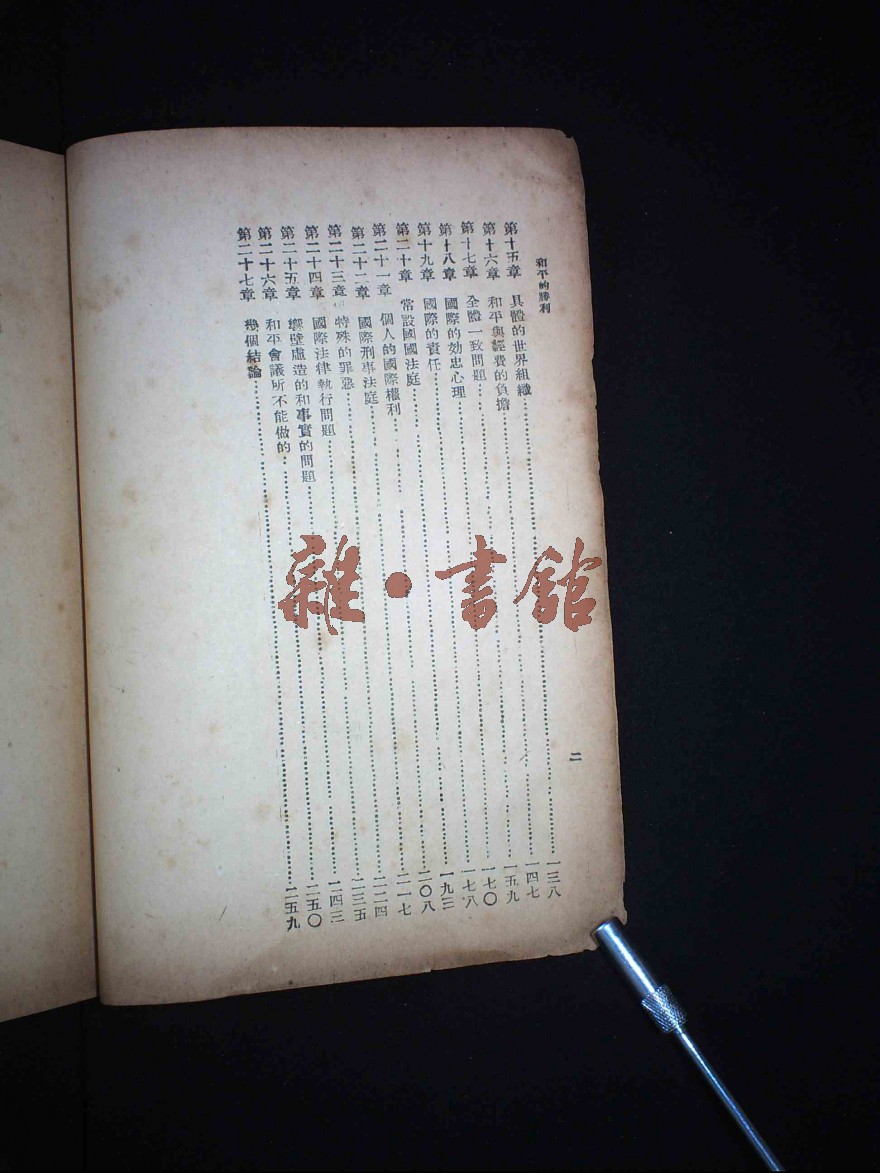 和平的勝利
二
第十五章 具體的世界組織……一三八
第十六章 和平與經費的負擔……一四七
第十七章 全體一致問題……一五九
第十八章 國際的効忠心理……一七〇
第十九章 國際的責任……一七八
第二十章 常設國國法庭……一九三
第二十一章 個人的國際權利……二〇八
第二十二章 國際刑事法庭……二一七
第二十三章 特殊的罪惡……二二四
第二十四章 國際法律執行問題……二三五
第二十五章 嚮壁虛造的和事實的問題……二四三
第二十六章 和平會議所不能做的……二五〇
第二十七章 幾個結論……二五九
雜·書館